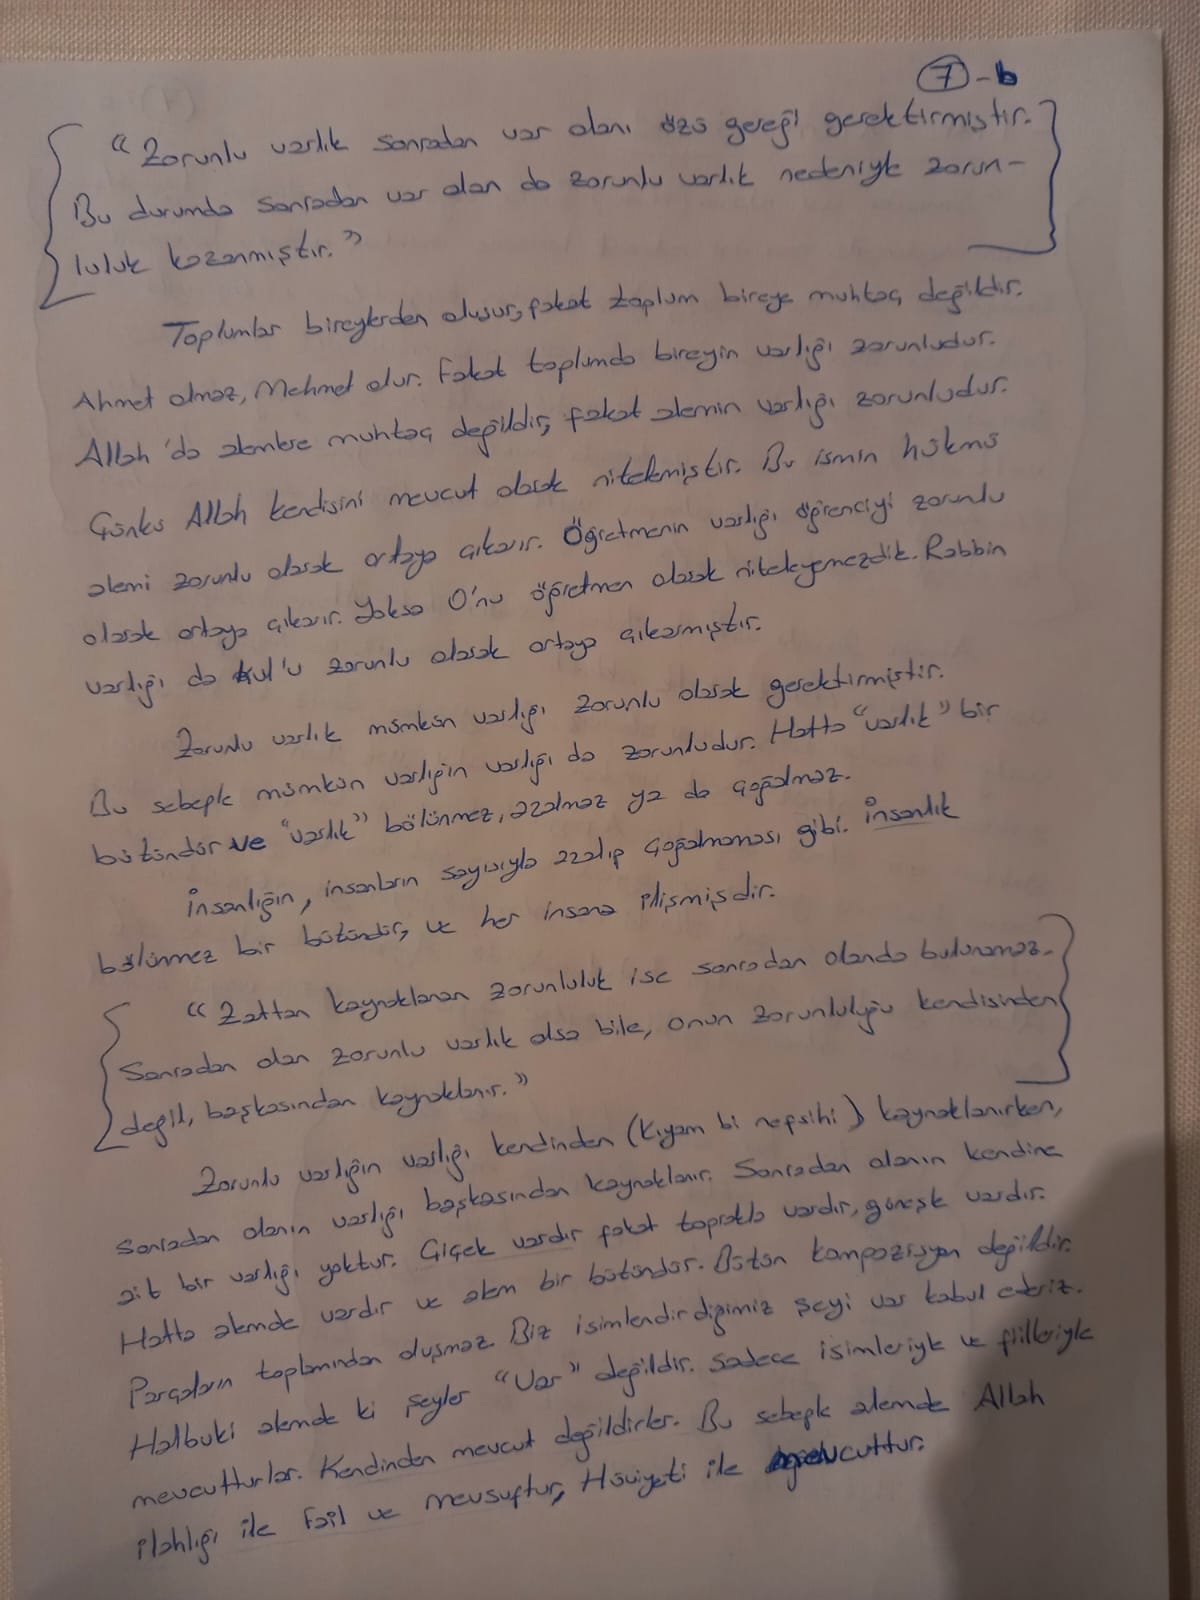 7-b
"Zorunlu varlık sonradan var olanı özü gereği gerektirmiştir.
Bu durumda sonradan var olan da zorunlu varlık nedeniyle zorun-
luluk kazanmıştır."
Toplumlar bireylerden oluşur, fakat toplum bireye muhtaç değildir.
Ahmet olmaz, Mehmet olur. Fakat toplumda bireyin varlığı zorunludur.
Allah'da alemlere muhtaç değildir, fakat alemin varlığı zorunludur.
Çünkü Allah kendisini mevcut olarak nitelemiştir. Bu ismin hükmü
alemi zorunlu olarak ortaya çıkarır. Öğretmenin varlığı öğrenciyi zorunlu
olarak ortaya çıkarır. Yoksa O'nu öğretmen olarak niteleyemezdik. Rabbin
varlığı da kul'u zorunlu olarak ortaya çıkarmıştır.
Zorunlu varlık mümkün varlığı zorunlu olarak gerektirmiştir.
Bu sebeple mümkün varlığın varlığı da zorunludur. Hatta "varlık" bir
bütündür ve "varlık" bölünmez, azalmaz ya da çoğalmaz.
İnsanlığın, insanların sayısıyla azalıp çoğalmaması gibi. İnsanlık
bölünmez bir bütündür, ve her insana ilişmişdir.
"Zattan kaynaklanan zorunluluk ise sonradan olanda bulunamaz.
Sonradan olan zorunlu varlık olsa bile, onun zorunluluğu kendisinden
değil, başkasından kaynaklanır."
Zorunlu varlığın varlığı kendinden (kıyam bi nefsihi) kaynaklanırken,
sonradan olanın varlığı başkasından kaynaklanır. Sonradan olanın kendine
ait bir varlığı yoktur. Çiçek vardır fakat toprakla vardır, güneşle vardır.
Hatta alemde vardır ve alem bir bütündür. Bütün kompozisyon değildir.
Parçaların toplamından oluşmaz. Biz isimlendirdiğimiz şeyi var kabul ederiz.
Halbuki alemde ki şeyler "Var" değildir. Sadece isimleriyle ve fiilleriyle
mevcutturlar. Kendinden mevcut değildirler. Bu sebeple alemde Allah
ilahlığı ile Fail ve mevsuftur, Hüviyeti ile mevcuttur.